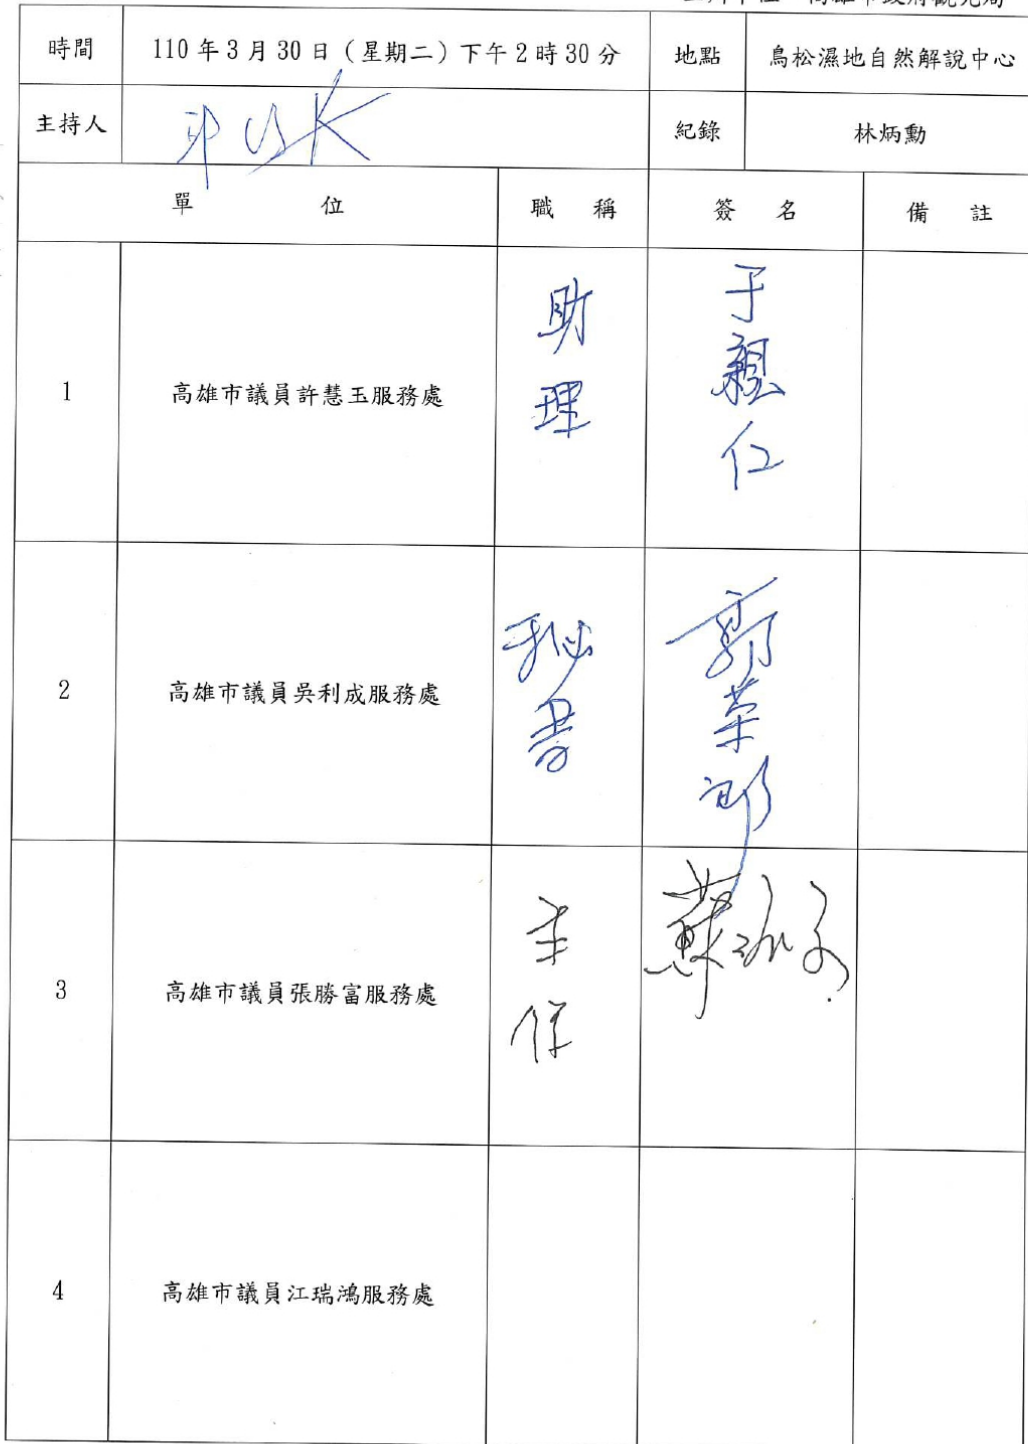 時間 110年3月30日（星期二）下午2時30分 地點 鳥松濕地自然解說中心
主持人 紀錄 林炳勳
單位 職稱 簽名 備註
1 高雄市議員許慧玉服務處 助理 于親仁
2 高雄市議員吳利成服務處 秘書 郭榮
3 高雄市議員張勝富服務處 主任 蘇
4 高雄市議員江瑞鴻服務處